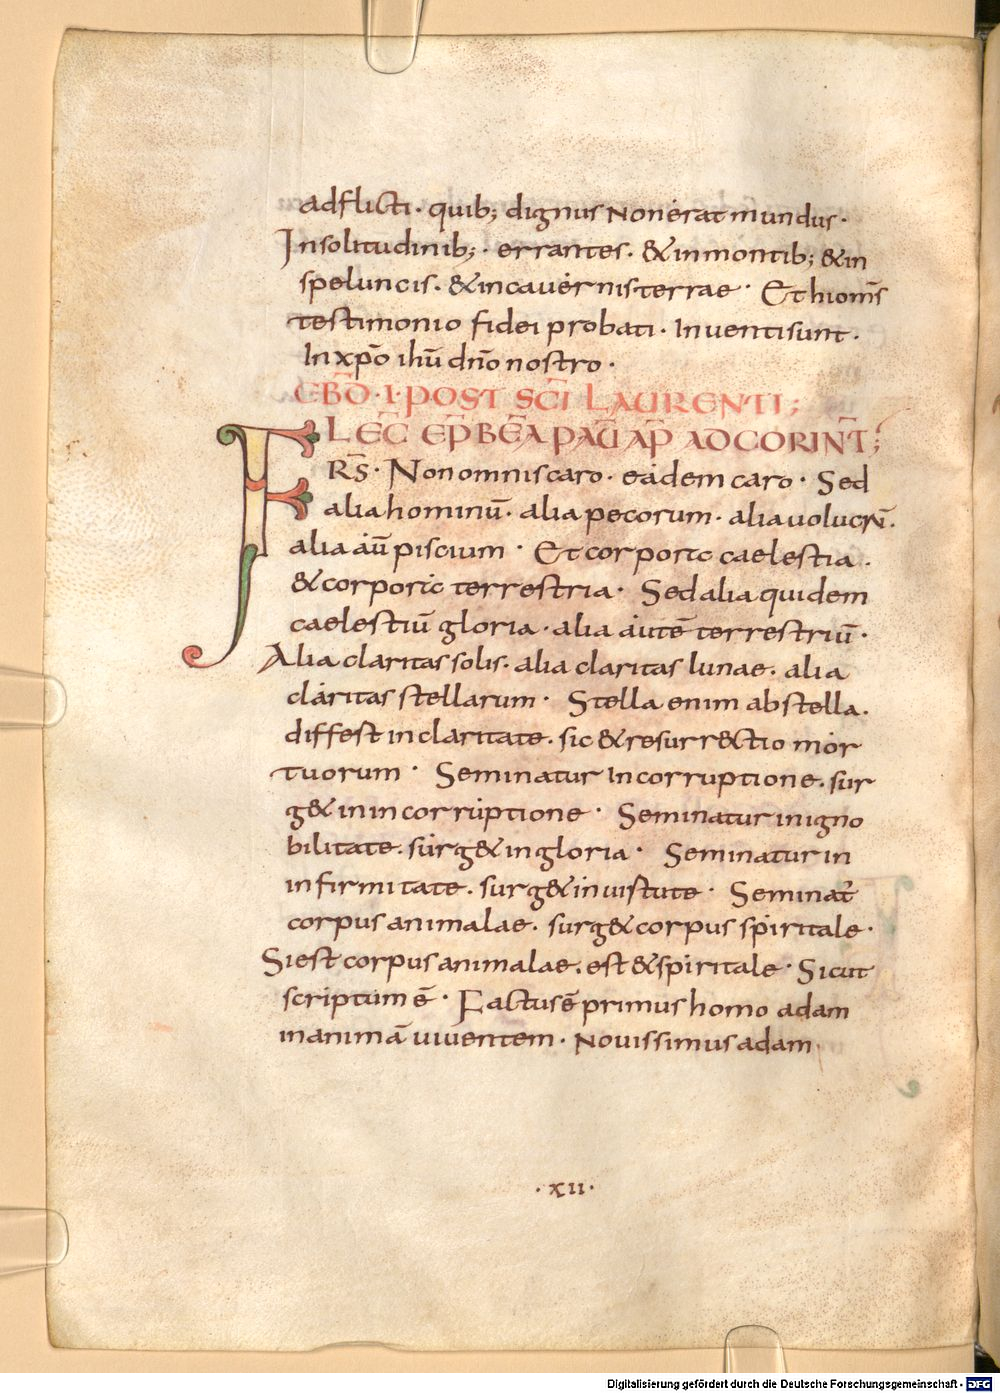 adflicti · quib; dignus non erat mundus ·
Insolitudinib; · errantes · & in montib; & in
speluncis · & in cavernis terrae · Et hi om̄s
testimonio fidei probati · Inventi sunt ·
In xp̄o ihū dn̄o nostro ·
EBD̄ · I · POST SCĪ LAURENTI ;
LEC̄ EP̄ BEĀ PAŪ AP̄ AD CORINT̄ ;
F RS̄ · Non omnis caro · eadem caro · Sed
alia hominū · alia pecorum · alia volucrū ·
alia aū piscium · Et corpora caelestia ·
& corpora terrestria · Sed alia quidem
caelestiū gloria · alia autē terrestriū ·
Alia claritas solis · alia claritas lunae · alia
claritas stellarum · Stella enim ab stella ·
differt in claritate · sic & resurr&ctio mor
tuorum · Seminatur In corruptione · sur
g& in incorruptione · Seminatur in igno
bilitate · surg& in gloria · Seminatur in
infirmitate · surg& in virtute · Seminat̄
corpus animalae · surg& corpus spiritale ·
Si est corpus animalae · est & spiritale · Sicut
scriptum ē · Factus ē primus homo adam
in animā viventem · Novissimus adam
· XII ·
Digitalisierung gefördert durch die Deutsche Forschungsgemeinschaft - DFG